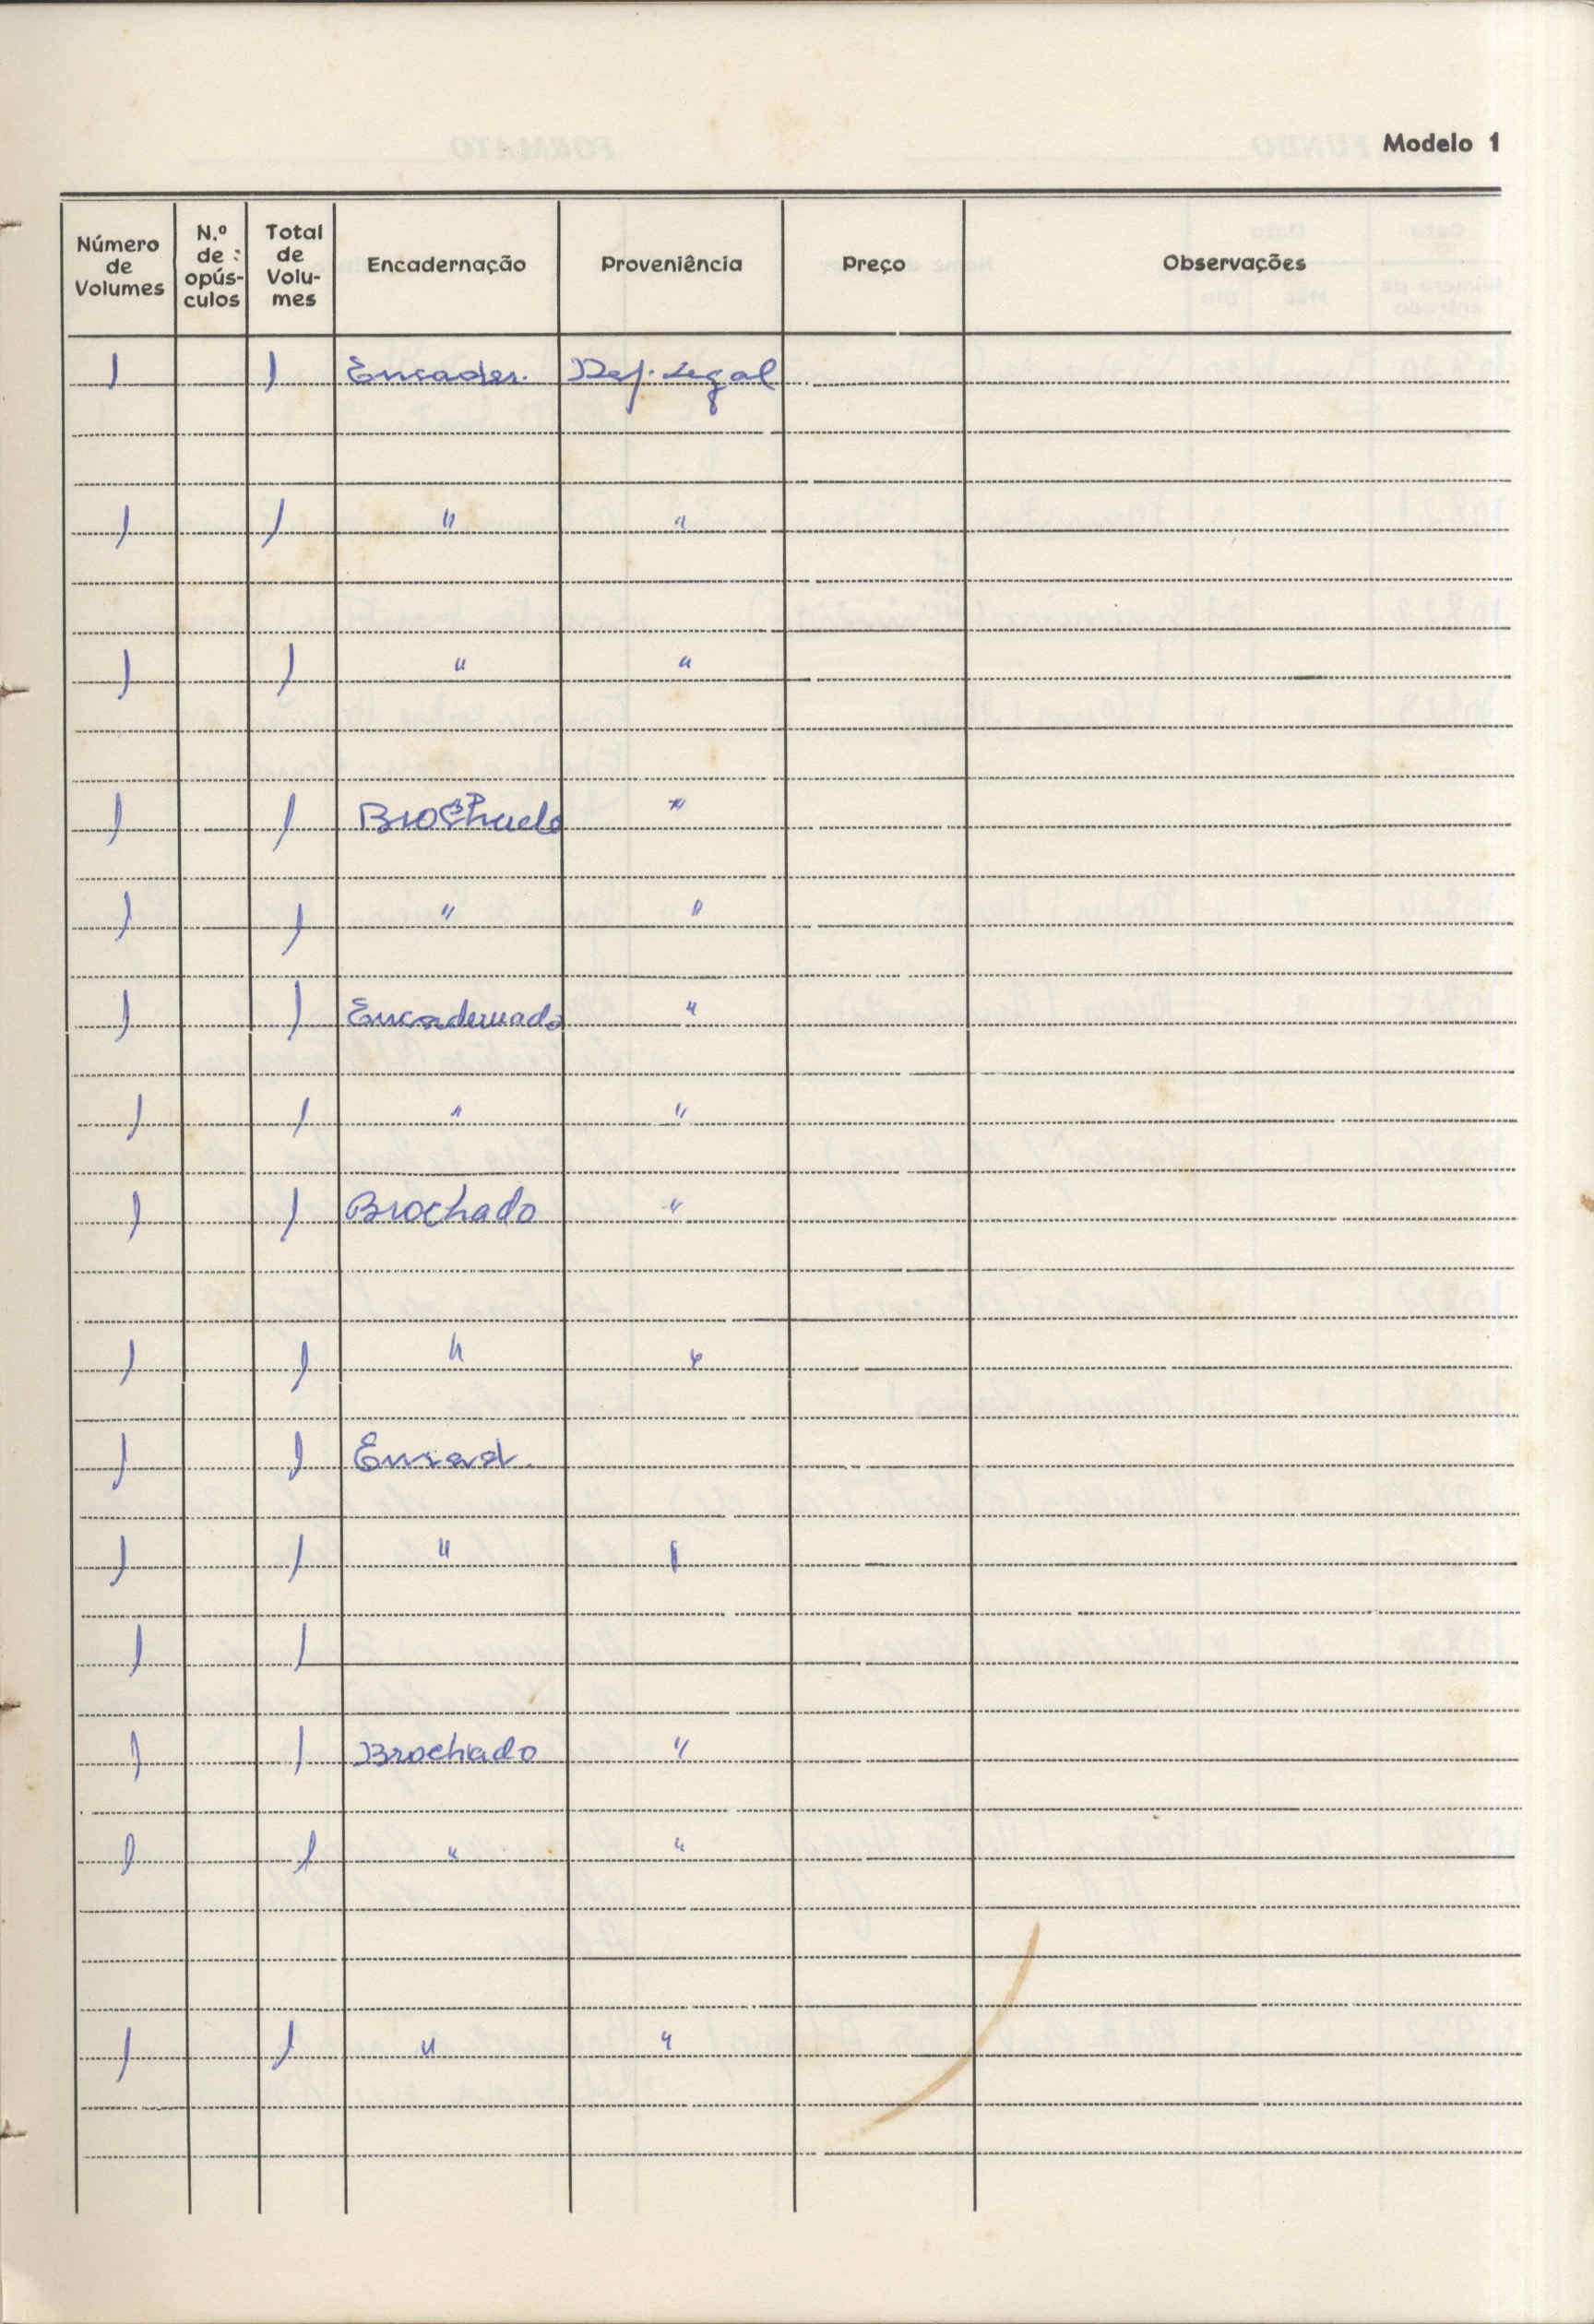 Modelo 1
Número de Volumes N.º de opús- culos Total de Volu- mes Encadernação Proveniência Preço Observações
1 1 Encader. Dep. Legal
1 1 " "
1 1 " "
1 1 Brochado "
1 1 " "
1 1 Encadernado "
1 1 " "
1 1 Brochado "
1 1 " "
1 1 Encad.
1 1 " "
1 1
1 1 Brochado "
1 1 " "
1 1 " "